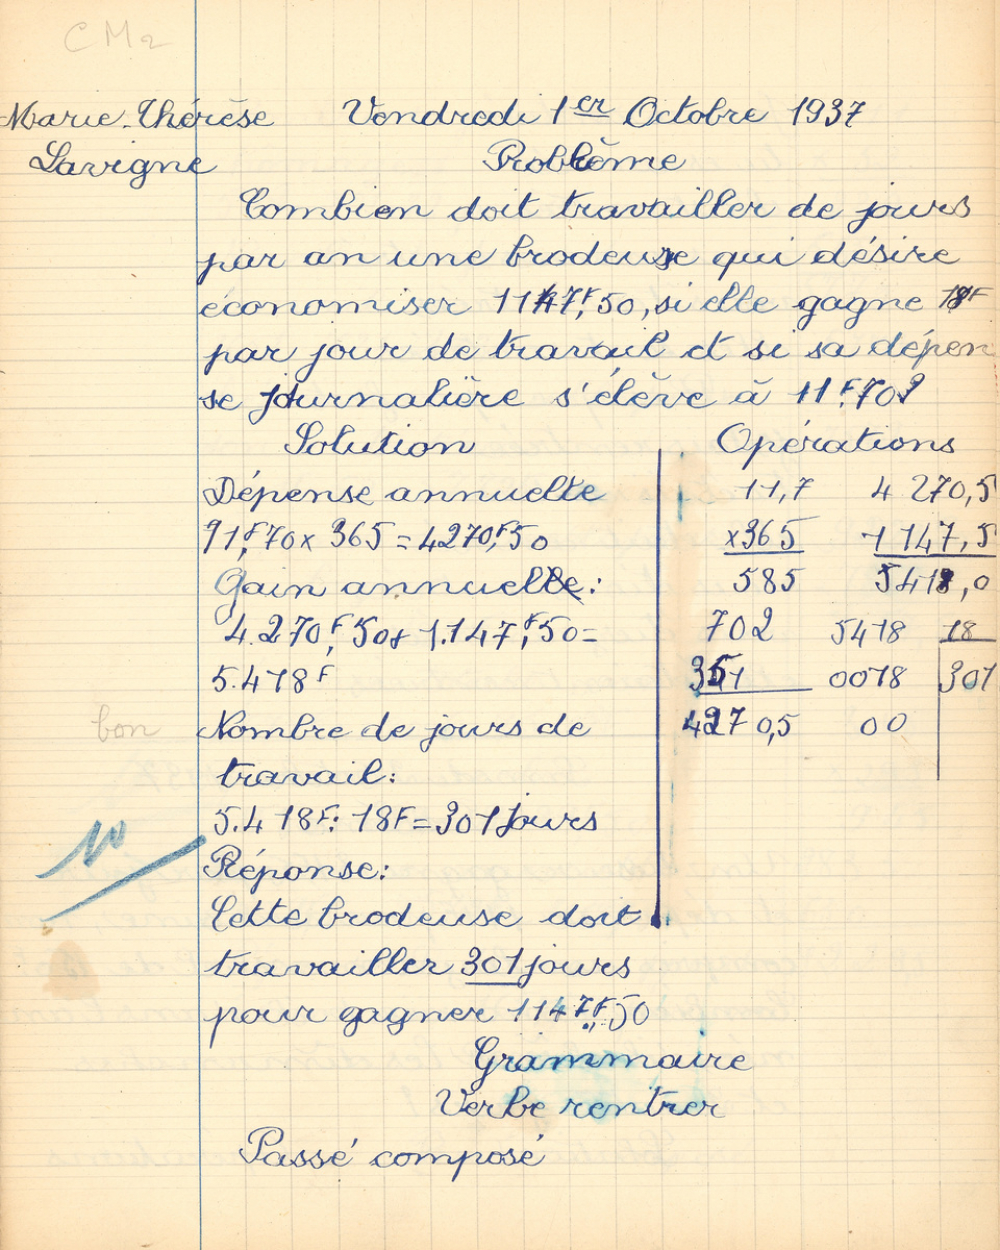 CM2
Marie-Thérèse Vendredi 1er Octobre 1937
Lavigne Problème
Combien doit travailler de jours
par an une brodeuse qui désire
économiser 1147F,50, si elle gagne 18F
par jour de travail et si sa dépen
se journalière s'élève à 11F,70?
Solution
Dépense annuelle
11F,70 x 365 = 4270F,50
Gain annuelle:
4.270F,50+ 1.147F,50=
5.418F
bon Nombre de jours de
travail:
5.418F: 18F= 301 jours
10
Réponse:
Cette brodeuse doit
travailler 301 jours
pour gagner 1147F,50
Opérations
11,7 4 270,5
x365 +1 147,5
585 5418,0
702 5418 18
351 0018 301
4270,5 00
Grammaire
Verbe rentrer
Passé composé